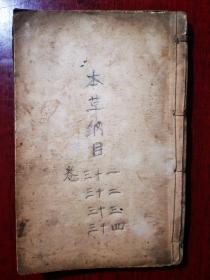 本草纲目
卷三十一
三十二
三十三
三十四